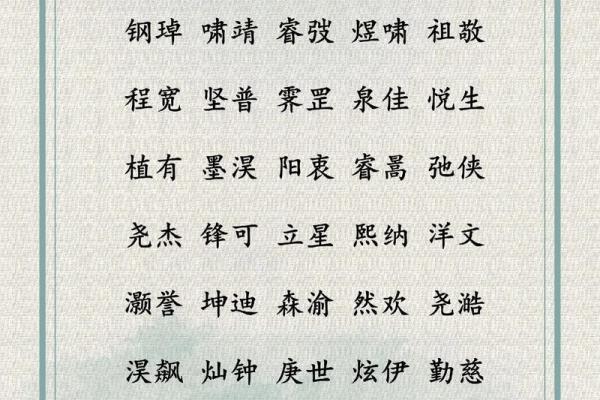 钢琸 啸靖 睿弢 煜啸 祖敬
程宽 坚普 霁罡 泉佳 悦生
植有 墨淏 阳衷 睿暠 弛侠
尧杰 锋可 立星 熙纳 洋文
灏誉 坤迪 森渝 然欢 尧澔
淏飙 灿钟 庚世 炫伊 勤慈